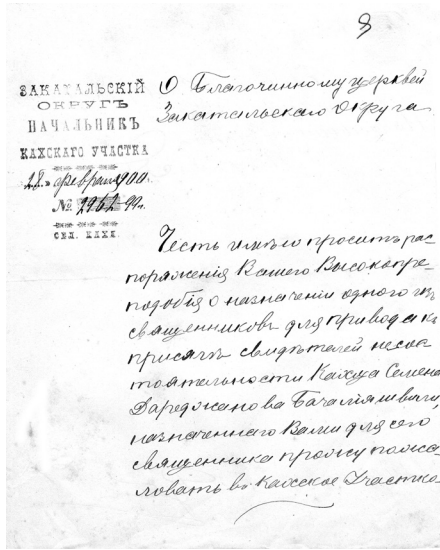 9
ЗАКАТАЛЬСКІЙ
ОКРУГЪ
НАЧАЛЬНИКЪ
КАХСКАГО УЧАСТКА
28 февраля 1900 г.
№
СЕЛ. КАХЪ.
О. Благочинному церквей
Закатальскаго Округа
Честь имѣю просить рас
поряженія Вашего Высокопре
подобія о назначеніи одного изъ
священниковъ для привода къ
присягѣ свидѣтелей несос
тоятельности Кахца Семена
Дареджанова Бачаліяшвили,
назначеннаго Вами для сего
священника прошу пожа
ловать въ Кахское Участко